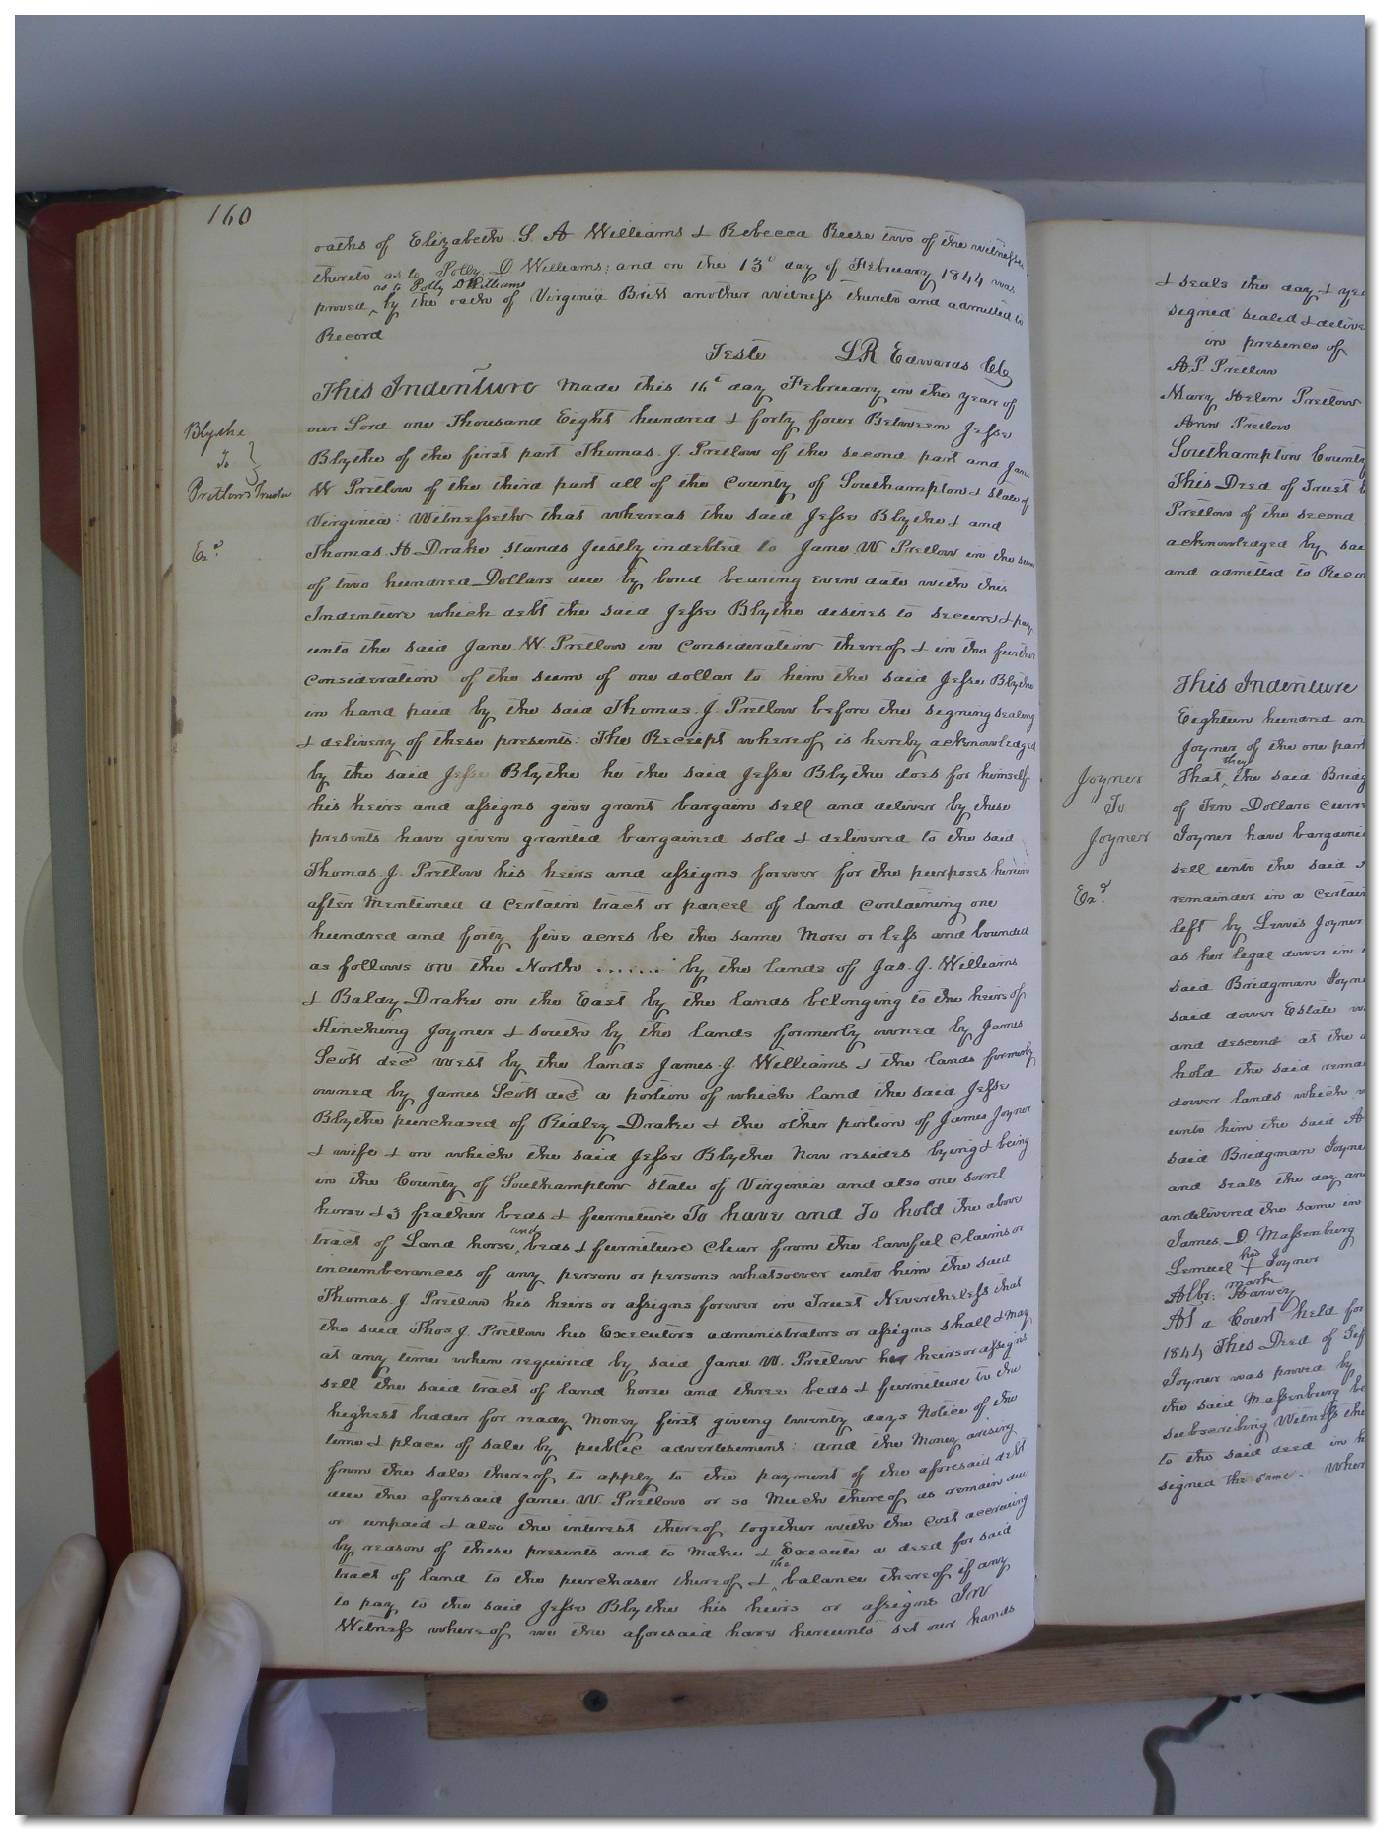 160
oaths of Elizabeth S. A Williams & Rebecca Reese two of the witnesses
thereto as to Polly D Williams; and on the 13th day of February 1844 was
as to Polly D Williams
proved by the oath of Virginia Britt another witness thereto and admitted to
Record
Teste LR Edwards CC
Blythe
To
Pretlows Trustee
Exd
This Indenture Made this 16th day February in the year of
our Lord one Thousand Eight hundred & forty four Between Jesse
Blythe of the first part Thomas J. Pretlow of the second part and Jane
W Pretlow of the third part all of the County of Southampton & State of
Virginia: Witnesseth that whereas the said Jesse Blythe & and
Thomas H Drake stands Justly indebted to Jane W Pretlow in the sum
of two hundred Dollars due by bond bearing even date with this
Indenture which debt the said Jesse Blythe desires to secure & pay
unto the said Jane W. Pretlow in Consideration thereof & in the further
Consideration of the sum of one dollar to him the said Jesse Blythe
in hand paid by the said Thomas J. Pretlow before the signing sealing
& delivery of these presents: The Receipt whereof is hereby acknowledged
by the said Jesse Blythe he the said Jesse Blythe does for himself
his heirs and assigns give grant bargain sell and deliver by these
presents have given granted bargained sold & delivered to the said
Thomas J. Pretlow his heirs and assigns forever for the purposes herein
after Mentioned a Certain tract or parcel of land Containing one
hundred and forty five acres be the same More or less and bounded
as follows on the North ....... by the lands of Jas. J. Williams
& Baldy Drake on the East by the lands belonging to the heirs of
Hinching Joyner & south by the lands formerly owned by James
Scott decd west by the lands James J. Williams & the lands formerly
owned by James Scott decd a portion of which land the said Jesse
Blythe purchased of Drake & the other portion of James Joyner
& wife & on which the said Jesse Blythe Now resides lying & being
in the County of Southampton State of Virginia and also one sorrel
horse & 3 feather beds & furniture To have and To hold the above
and
tract of Land horse beds & furniture Clear from the lawful Claims or
incumberances of any person or persons whatsoever unto him the said
Thomas J. Pretlow his heirs or assigns forever in Trust Nevertheless that
the said Thos J. Pretlow his Executors administrators or assigns shall & may
at any time when required by said Jane W. Pretlow her heirs or assigns
sell the said tract of land horse and three beds & furniture to the
highest bidder for ready Money first giving twenty days Notice of the
time & place of sale by public advertisement: and the Money arising
from the sale thereof to apply to the payment of the aforesaid debt
due the aforesaid Jane W. Pretlow or so Much thereof as remain due
or unpaid & also the interest thereof together with the Cost accruing
by reason of these presents and to Make & Execute a deed for said
the
tract of land to the purchaser thereof & balance thereof if any
to pay to the said Jesse Blythe his heirs or assigns In
Witness whereof we the aforesaid have hereunto set our hands
& seals the day & yea
signed sealed & delive
in presence of
A.P. Pretlow
Mary Helen Pretlow
Ann Pretlow
Southampton County
This Deed of Trust b
Pretlow of the second
acknowledged by sai
and admitted to Recor
Joyner
To
Joyner
Exd
This Indenture
Eighteen hundred an
Joyner of the one part
they
That the said Bridg
of Ten Dollars curre
Joyner have bargaine
sell unto the said
remainder in a Certain
left by Lewis Joyner
as her legal dower in
said Bridgman Joyne
said dower Estate
and descend at the
hold the said remai
dower lands which
unto him the said A
said Bridgman Joyne
and seals the day an
andelivered the same in
James D Massenburg
his
Lemuel + Joyner
mark
Albr. Harvey
At a Court held for
1844 This Deed of
Joyner was proved by
the said Massenburg be
subscribing Witness the
to the said deed in h
signed the same. When